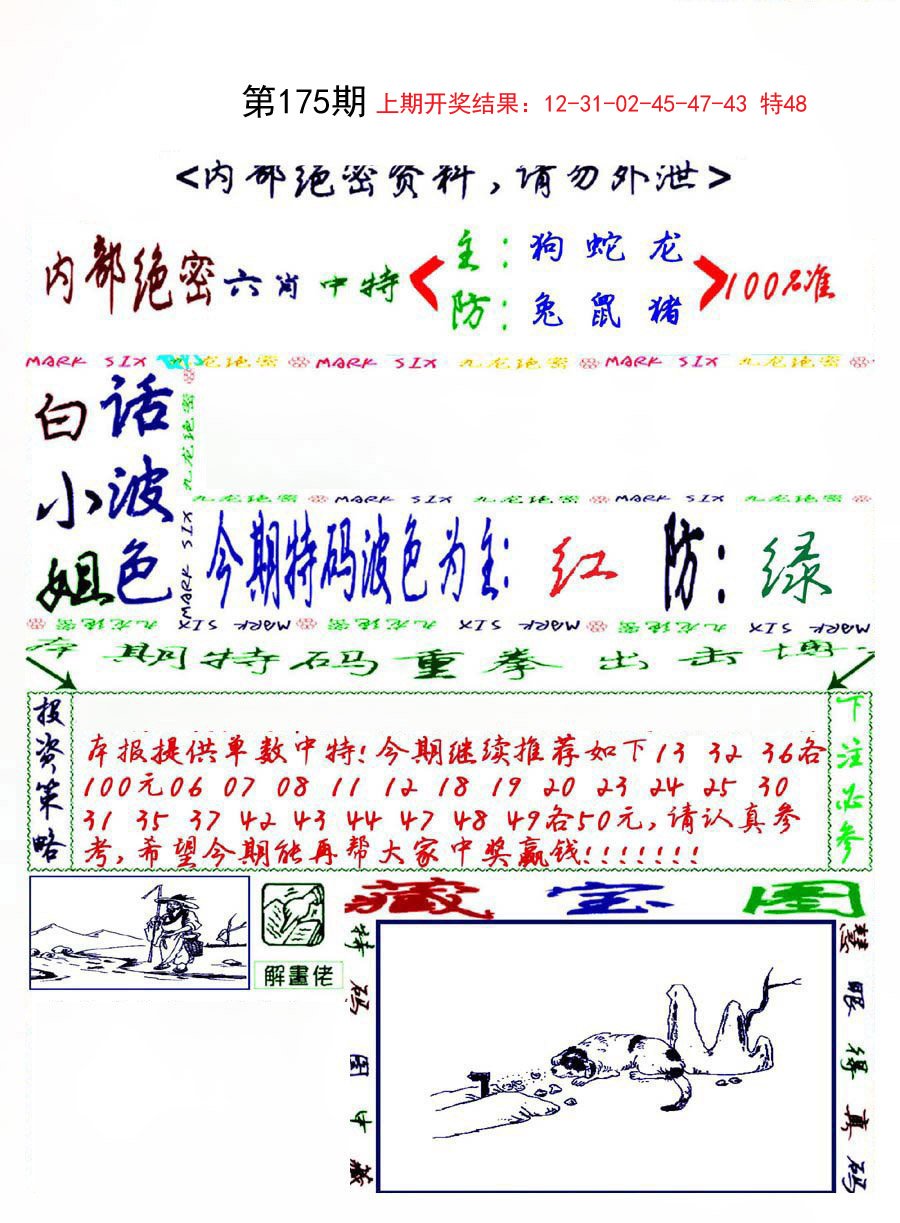 第175期 上期开奖结果：12-31-02-45-47-43 特48
<内部绝密资料，请勿外泄>
内部绝密六肖中特
主：狗 蛇 龙
防：兔 鼠 猪
100%准
MARK SIX 九龙绝密 MARK SIX 九龙绝密 MARK SIX 九龙绝密
白小姐
话波色
九龙绝密 MARK SIX
九龙绝密 MARK SIX 九龙绝密 MARK SIX 九龙绝密
今期特码波色为主：红 防：绿
九龙绝密 MARK SIX 九龙绝密 MARK SIX 九龙绝密 MARK SIX
本期特码重拳出击博
投资策略
本报提供单数中特!今期继续推荐如下13 32 36各
100元06 07 08 11 12 18 19 20 23 24 25 30
31 35 37 42 43 44 47 48 49各50元,请认真参
考,希望今期能再帮大家中奖赢钱!!!!!!!
下注必参
解畫佬
藏宝图
特码图中藏
慧眼得真码
7